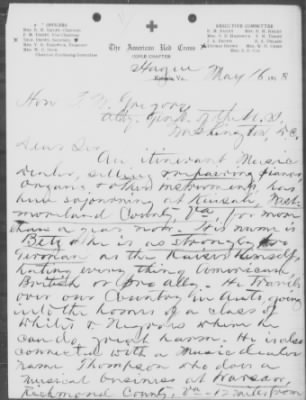 OFFICERS
EXECUTIVE COMMITTEE
The American Red Cross
Hague, Va., May 16, 1918
Hon. T. W. Gregory
Atty. Genl. of the U.S.
Washington, D.C.
Dear Sir
An itinerant Music
dealer, selling & repairing pianos,
organs & other instruments, has
been sojourning at Kinsale, West-
moreland County, Va. for more
than a year now. His name is
Betz & he is as strongly pro
German as the Kaiser himself,
hating every thing American,
British or pro ally. He travels
over our Country in Auto, going
into the homes of a class of
whites & Negroes where he
can do great harm. He is also
connected with a Music dealer
name Thompson who does a
musical business at Warsaw,
Richmond County, Va.